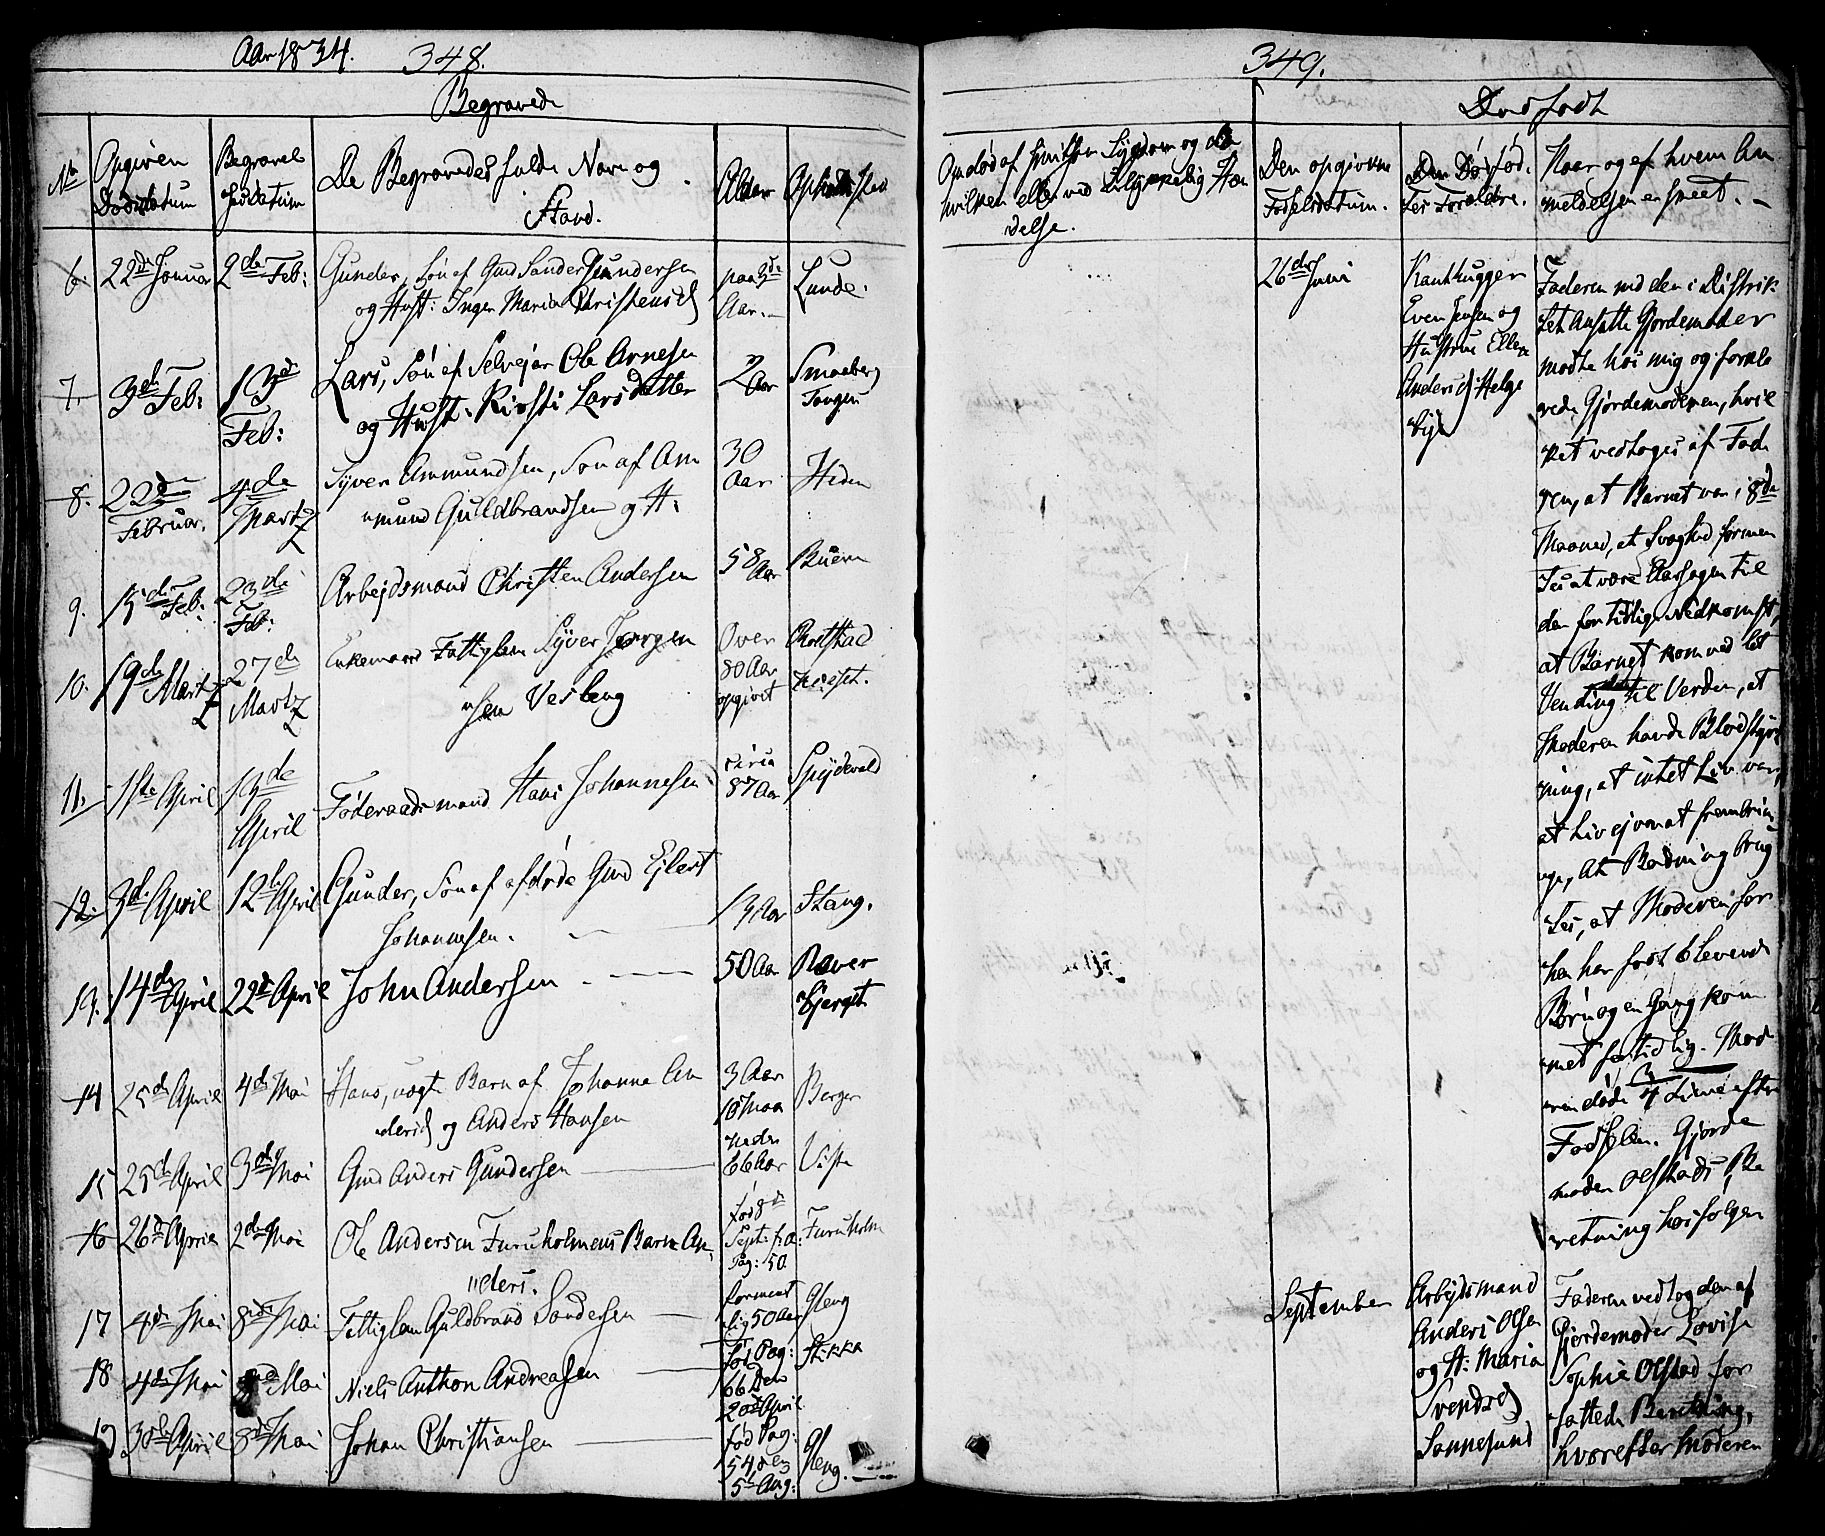 Aar 1834. 348.
Begravede
No
Opgiven
Dødsdatum
Begravel
sesDatum
De Begravedes fulde Navn og
Stand.
Alder
Opholdssted
6. 22de Januar 2de Feb: Gunder, Søn af Gmd Sander Gundersen
og Hust: Inger Maria Christensd
paa 3de
Aar.
Lunde.
7. 3de Feb: 13de
Feb:
Lars, Søn af Selvejer Ole Arnesen
og Hust: Kirsti Larsdatter
2 Aar
Smaaberg
Tangen
8. 22de
Februar.
4de
Martz
Syver Ammundsen, Søn af Am
mund Guldbrandsen og H:
30
Aar
Heden
9. 15de Feb: 23de
Feb:
Arbejdsmand Christen Andersen
58
Aar
Buern
10. 19de Martz 27de
Martz
Enkemand Fattiglem Syver Jørgen
sen Vesleng
Over
80 Aar
opgivet
11. 1ste April 13de
April
Føderaadsmand Hans Johannesen
circa
87 Aar
Spydevold
12. 3de April 12te April Gunder, Søn af afdøde Gmd Ejlert
Johannesen.
13 Aar Stang.
13. 14de April 22de April John Andersen
50 Aar Raver
bjerget
14 25de April 4de Mai Hans, uægte Barn af Johanna An
dersd og Anders Hansen
3 Aar
10 Maa
neder
Berger
15 25de April 3de Mai Gmd Anders Gundersen
66 Aar Viste
16 26de April 2de Mai Ole Andersen Furuholmens Barn An
ders.
fød 8de
Sept: f.a.
Pag: 50
Furuholm
17 4de Mai 8de Mai Fattiglem Guldbrand Sandersen
forment
lig 50 Aar
Gleng
18 4de Mai Mai Niels Anthon Andreasen
fød Pag:
66 Den
20de April
Stikka
19 30de April 8de Mai Johan Christiansen
fød Pag:
54 den
5te Aug:
Gleng.
349.
Dødfødt
Om død af hvilken Sygdom og
hvilken eller ved Ulykkelig Hæn
delse.
Den opgivne
Fødselsdatum.
Den Dødfød-
tes Forældre.
Naar og af hvem An
meldelsen er skeet.
26de Juni
Kanthugger
Even Jensen og
Hustrue Ellen
Andersd: Helge
bye
Faderen med den i Distrik
tet Ansatte Gjordemoder
mødte hos mig og forkla
rede Gjordemoderen, hvil
ket vedtoges af Fade
ren, at Barnet var i 8de
Maaned, at Svaghed formen
tes at være Aarsagen til
den fortidlige Nedkomst,
at Barnet kom ved let
Vending til Verden, at
Moderen havde Blodstyrt
ning, at intet Liv var,
at Liv ej var at frembrin
ge, At Badning brug
tes, at Moderen før
hen har født 6 levende
Børn og en Gang kom
met fortidlig. Mode
ren døde 3 Timer efter
Fødselen. Gjorde
moder Olstads Be
retning hosfølger
September
Arbejdsmand
Anders Olsen
og H: Maria
Svendsd
Sannesund
Faderen vedtog den af
Gjordemoder Lovise
Sophie Olstad for
fattede Beretning,
hvorefter Moderen